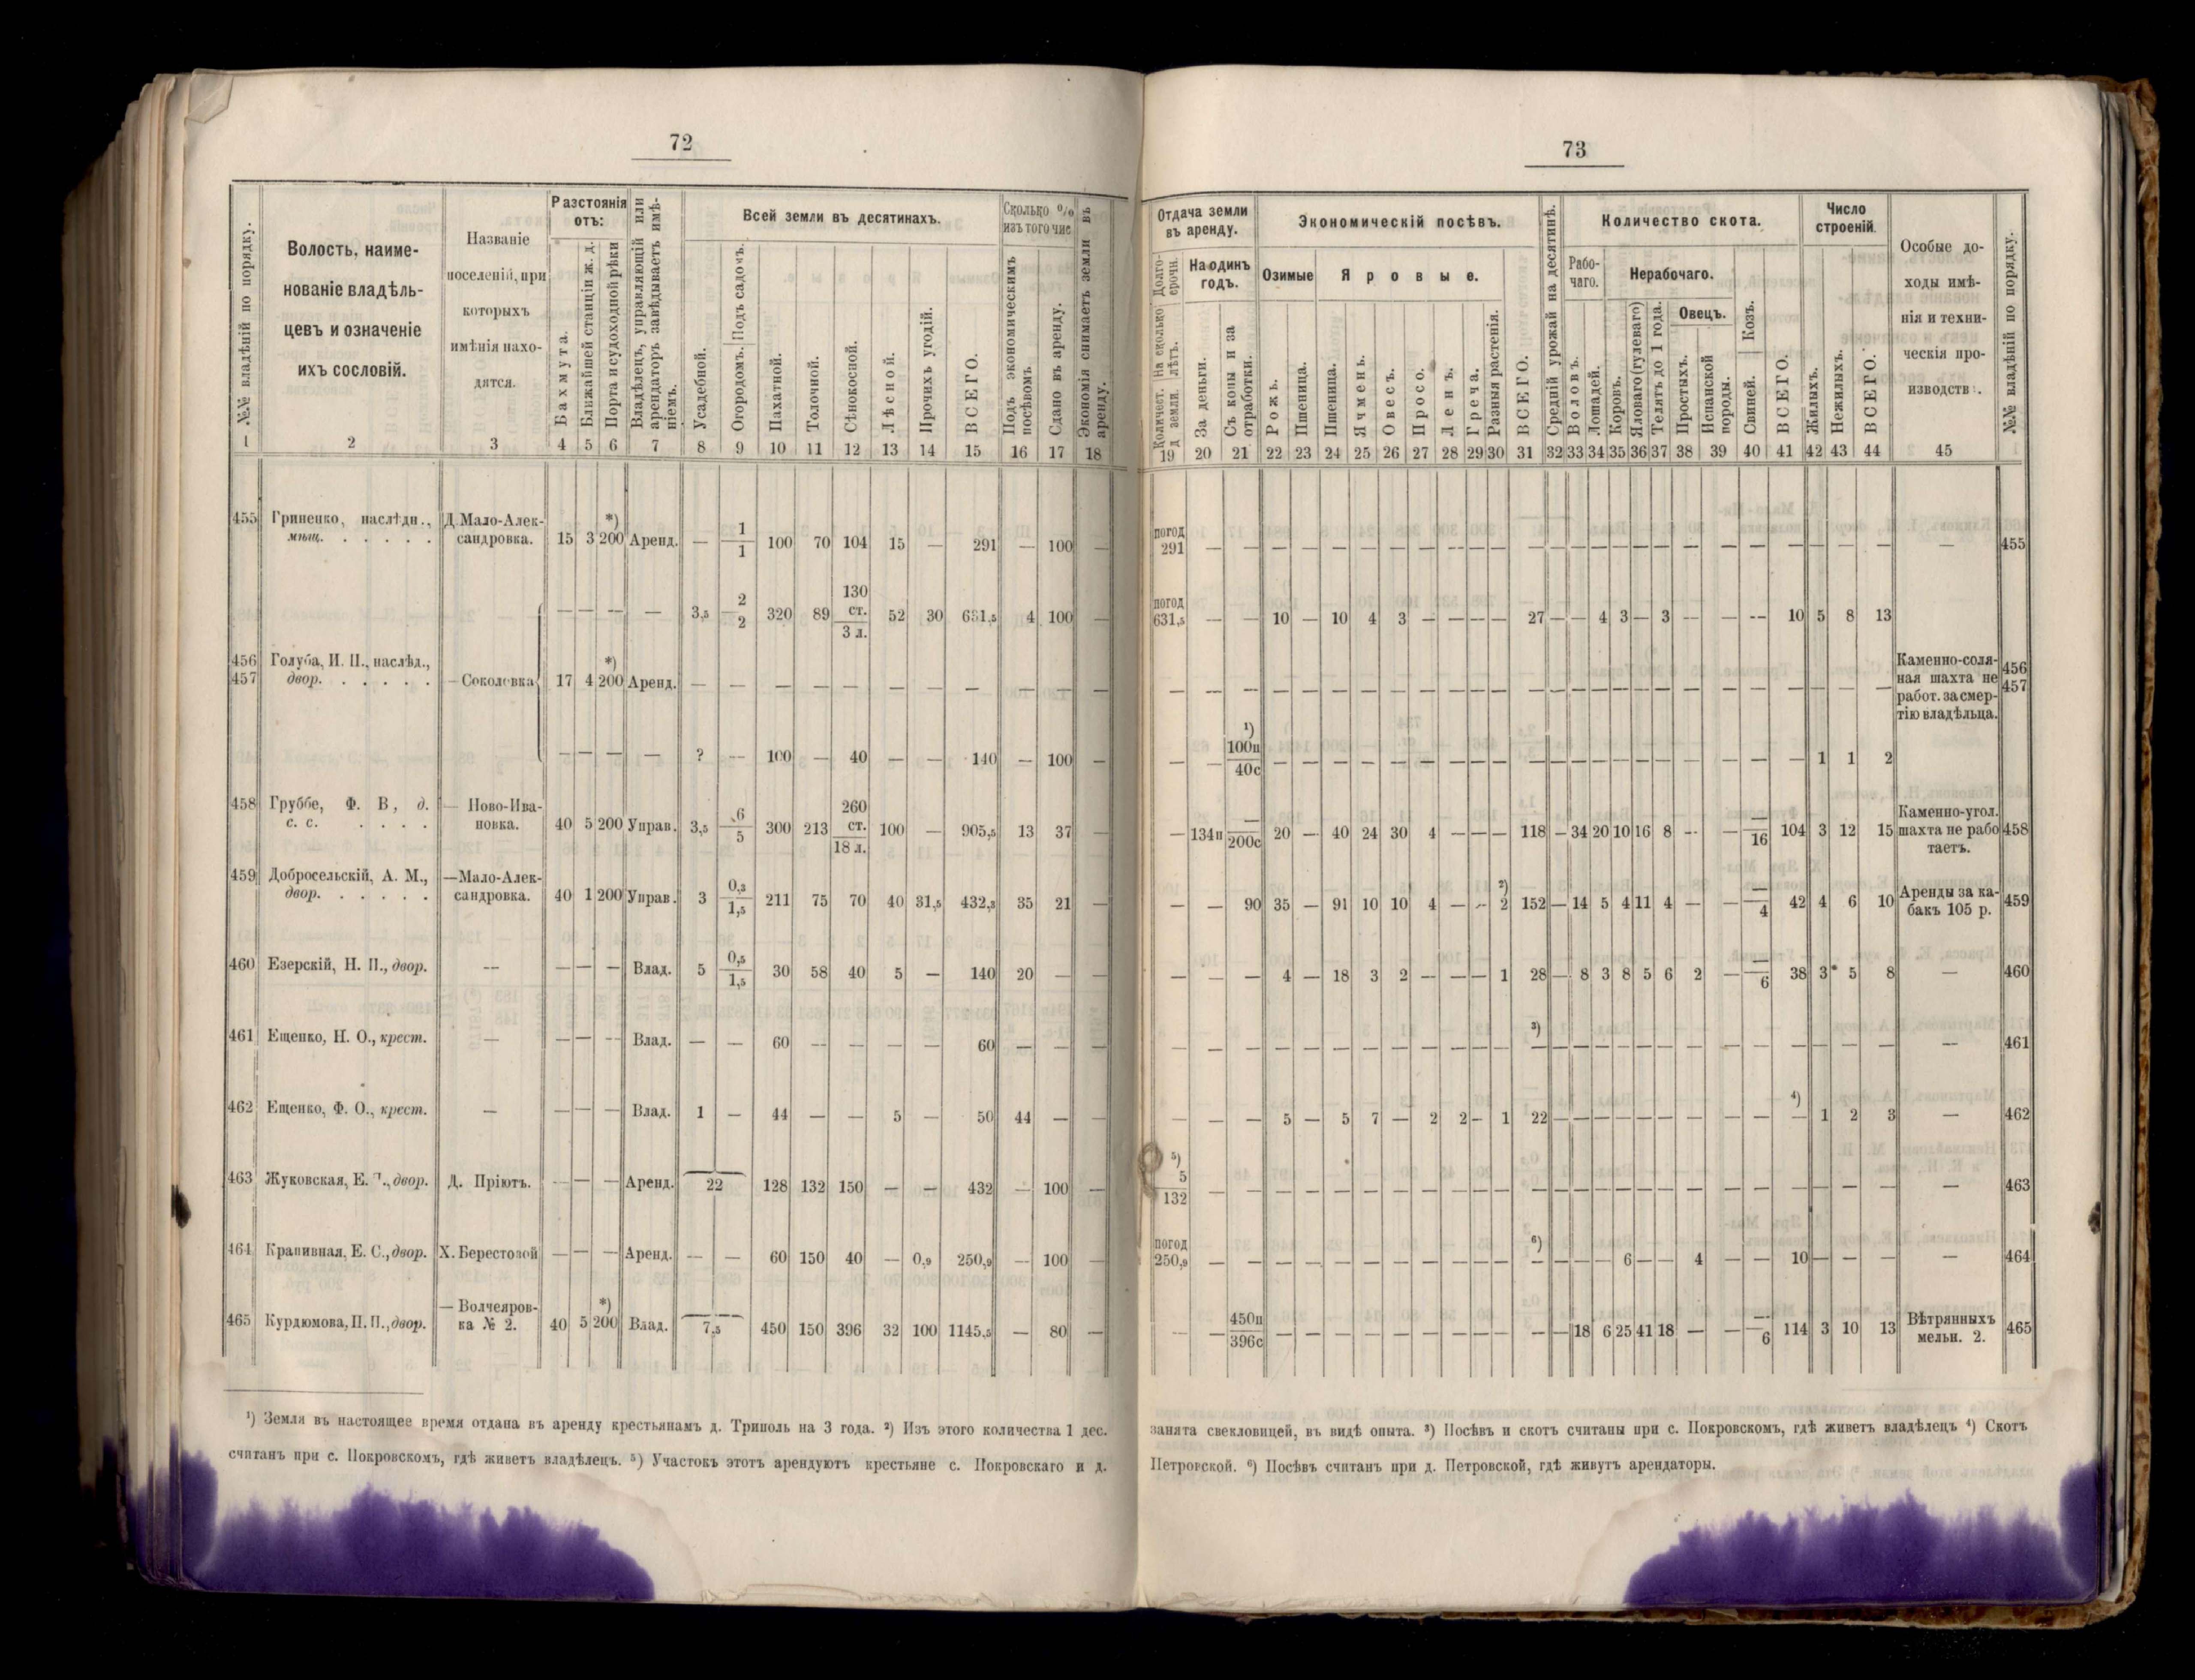 72
№№ владѣній по порядку.
Волость, наиме-
нованіе владѣль-
цевъ и означеніе
ихъ сословій.
Названіе
поселеній, при
которыхъ
имѣнія нахо-
дятся.
Разстоянія
отъ:
Бахмута.
Ближайшей станціи ж. д.
Порта и судоходной рѣки
Владѣлецъ, управляющій или
арендаторъ завѣдываетъ имѣ-
ніемъ.
Всей земли въ десятинахъ.
Усадебной.
Огородомъ. Подъ садомъ.
Пахатной.
Толочной.
Сѣнокосной.
Лѣсной.
Прочихъ угодій.
ВСЕГО.
Сколько %
изъ того чис
Подъ экономическимъ
посѣвомъ.
Сдано въ аренду.
Экономія снимаетъ земли въ
аренду.
1 2 3 4 5 6 7 8 9 10 11 12 13 14 15 16 17 18
455 Гриненко, наслѣдн., Д. Мало-Алек- *) 1
мѣщ. . . . . . сандровка. 15 3 200 Аренд. — 1 100 70 104 15 — 291 — 100 —
130
— — — — 3,5 2 320 89 ст. 52 30 631,5 4 100 —
2 3 л.
456 Голуба, И. П., наслѣд., *)
457 двор. . . . . . — Соколовка 17 4 200 Аренд. — — — — — — — — — — —
— — — — ? — 100 — 40 — — 140 — 100 —
458 Груббе, Ф. В, д. — Ново-Ива- 260
с. с. . . . . новка. 40 5 200 Управ. 3,5 6 300 213 ст. 100 — 905,5 13 37 —
5 18 л.
459 Добросельскій, А. М., — Мало-Алек- 0,3
двор. . . . . . сандровка. 40 1 200 Управ. 3 1,5 211 75 70 40 31,5 432,3 35 21 —
460 Езерскій, Н. П., двор. — — — — Влад. 5 0,5 30 58 40 5 — 140 20 — —
1,5
461 Ещенко, Н. О., крест. — — — — Влад. — — 60 — — — — 60 — — —
462 Ещенко, Ф. О., крест. — — — — Влад. 1 — 44 — — 5 — 50 44 — —
463 Жуковская, Е. двор. Д. Пріютъ. — — — Аренд. 22 128 132 150 — — 432 — 100 —
464 Крапивная, Е. С., двор. Х. Берестовой — — — Аренд. — — 60 150 40 — 0,9 250,9 — 100 —
— Волчеяров- *)
465 Курдюмова, П. П., двор. ка № 2. 40 5 200 Влад. 7,5 450 150 396 32 100 1145,5 — 80 —
¹) Земля въ настоящее время отдана въ аренду крестьянамъ д. Триполь на 3 года. ²) Изъ этого количества 1 дес.
считанъ при с. Покровскомъ, гдѣ живетъ владѣлецъ. ⁵) Участокъ этотъ арендуютъ крестьяне с. Покровскаго и д.
73
Отдача земли
въ аренду.
Долго-
срочн.
Количест. На сколько
д земли. лѣтъ.
На одинъ
годъ.
За деньги.
Съ копы и за
отработки.
Экономическій посѣвъ.
Озимые
Яровые.
Рожь.
Пшеница.
Пшеница.
Ячмень.
Овесъ.
Просо.
Ленъ.
Греча.
Разныя растенія.
ВСЕГО.
Средній урожай на десятинѣ.
Количество скота.
Рабо-
чаго.
Нерабочаго.
Воловъ.
Лошадей.
Коровъ.
Яловаго (гулеваго)
Телятъ до 1 года.
Овецъ.
Простыхъ.
Испанской
породы.
Свиней. Козъ.
ВСЕГО.
Число
строеній.
Жилыхъ.
Нежилыхъ.
ВСЕГО.
Особые до-
ходы имѣ-
нія и техни-
ческія про-
изводств.
№№ владѣній по порядку.
19 20 21 22 23 24 25 26 27 28 29 30 31 32 33 34 35 36 37 38 39 40 41 42 43 44 45
погод
291 — — — — — — — — — — — — — — — — — — — — — — — — — — 455
погод
631,5 — — 10 — 10 4 3 — — — — 27 — — 4 3 — 3 — — — 10 5 8 13
Каменно-соля- 456
ная шахта не 457
— — — — — — — — — — — — — — — — — — — — — — — — — — работ. за смер-
тію владѣльца.
¹)
100п
— — 40с — — — — — — — — — — — — — — — — — — — — 1 1 2
Каменно-угол.
— 134п — 20 — 40 24 30 4 — — — 118 — 34 20 10 16 8 — — — 104 3 12 15 шахта не рабо 458
200с 16 таетъ.
²)
— — 90 35 — 91 10 10 4 — — 2 152 — 14 5 4 11 4 — — — 42 4 6 10 Аренды за ка- 459
4 бакъ 105 р.
— — — 4 — 18 3 2 — — — 1 28 — 8 3 8 5 6 2 — — 38 3 5 8 — 460
6
³)
— — — — — — — — — — — — — — — — — — — — — — — — — — — 461
⁴)
— — — 5 — 5 7 — 2 2 — 1 22 — — — — — — — — — — 1 2 3 — 462
⁵)
5
132 — — — — — — — — — — — — — — — — — — — — — — — — — — 463
погод ⁶)
250,9 — — — — — — — — — — — — — — — 6 — — 4 — — 10 — — — — 464
450п
— — 396с — — — — — — — — — — — 18 6 25 41 18 — — — 114 3 10 13 Вѣтрянныхъ 465
6 мельн. 2.
занята свекловицей, въ видѣ опыта. ³) Посѣвъ и скотъ считаны при с. Покровскомъ, гдѣ живетъ владѣлецъ ⁴) Скотъ
Петровской. ⁶) Посѣвъ считанъ при д. Петровской, гдѣ живутъ арендаторы.